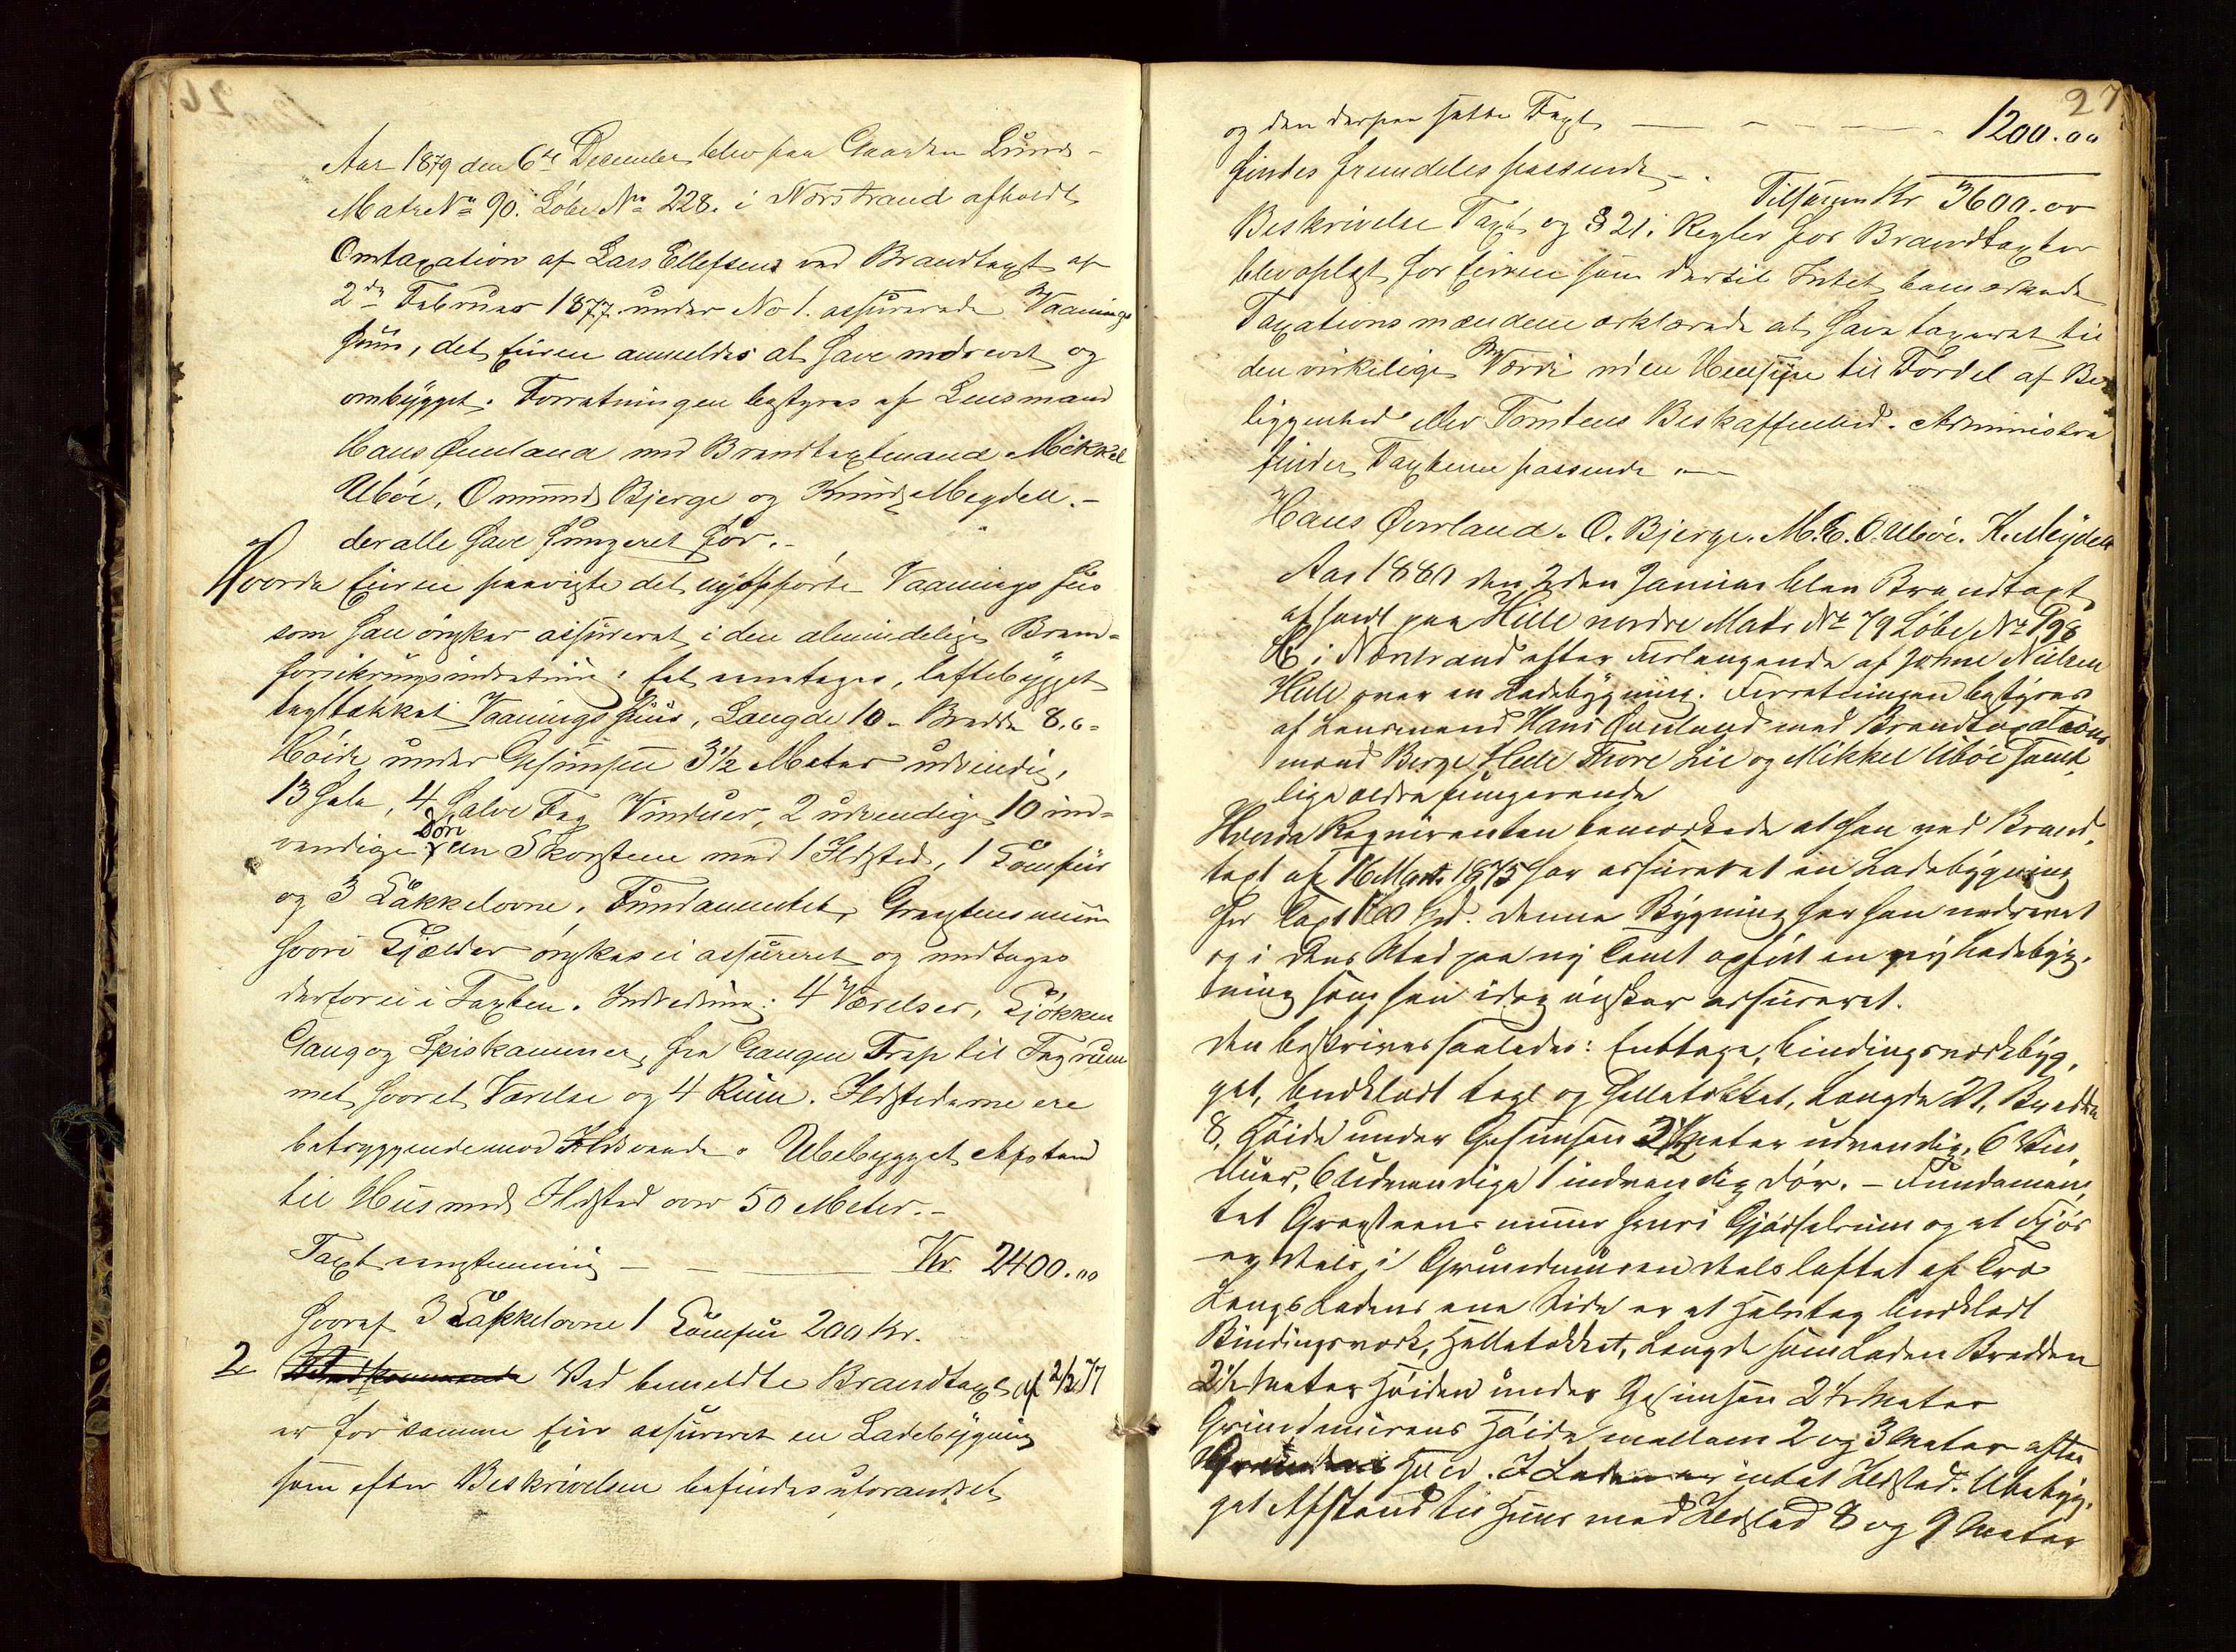 Aar 1879 den 6te December blev paa Gaarden Lunde
Matr No 90. Løbe No 228. i Norstrand afholdt
Omtaxation af Lars Ellefsens ved Brandtaxt af
2den Februar 1877 under No 1. assurerede Vaanings
huus, det Eieren anmeldes at have nedrevet og
ombygget. Forretningen bestyres af Lensmand
Hans Øverland med Brandtaxtmænd Mikkel
Ubøe, Omund Bjerge og Knud Meydell. -
der alle have fungeret før. -
Hvorda Eieren paaviste det nyopførte Vaaningshus
som han ønsker assureret i den almindelige Brand=
forsikringsindretning: Et etages, loftebygget
tagltækket Vaaningshuus, Længde 10 - Bredde 8,6 -
Høide under Gesimsen 3 1/2 Meter udvendig,
13 hele, 4 halve Fag Vinduer, 2 udvendige 10 ind=
vendige Døre en Skorsten med 1 Ildsted, 1 Komfur
og 3 Kakkelovne. Fundamentet, Graastensmuur
hvori Kjælder ønskes ei assureret og medtages
derfor ei i Taxten. Indredning: 4 Værelser, Kjøkken
Gang og Spiskammer, fra Gangen Trap til Tagrum
met hvoret Værelse og 4 Rum. Ildstederne ere
betryggende mod Ildsvaade. Ubebygget Afstand
til Huus med Ildsted over 50 Meter. -
Taxt enstemmig - - Kr 2400.00
hvoraf 3 Kakkelovne 1 Komfur 200 Kr.
2 Ved bemeldte Brandtaxt af 2/2 77
er for samme Eier assureret en Ladebygning
som efter Beskrivelsen befindes uforandret
27
og den derpaa satte Taxt - - - - 1200.00
findes fremdeles passende -.
Tilsammen Kr 3600.00
Beskrivelse Taxt og § 21 i Regler for Brandtaxter
blev oplæst for Eieren som dertil Intet bemærkede
Taxationsmændene erklærede at have taxeret til
den virkelige Værdi uden Hensyn til Fordel af Be
liggenhed eller Tomtens Beskaffenhed. Administra
finder Taxterne passende
Hans Øverland. O. Bjerge. M. E. O. Ubøe. K. Meydell
Aar 1880 den 2den Januar blev Brandtaxt
afholdt paa Hille nordre Matr No 79 Løbe No 198
b i Norstrand efter Forlangende af Johne Nielsen
Hille over en Ladebygning. Forretningen bestyres
af Lensmand Hans Øverland med Brandtaxations
mænd Berge Hille Thore Lie og Mikkel Ubøe samt
lige ældre fungerende
Hvorda Requirenten bemærkede at han ved Brand
taxt af 16 Marts 1875 har assureret en Ladebygning
for Taxt Spd. denne Bygning har han nedrevet
og i dens Sted paa ny Tomt opført en ny Ladebyg.
ning som han idag ønsker assureret.
den beskrives saaledes: Entage, bindingsverksbyg,
get, bordklædt tagl og helletækket, Længde 21, Bredde
8, Høide under Gesimsen 3 1/2 Meter udvendig, 6 Vin
duer, 6 udvendige 1 indvendig Dør. - Fundamen
tet Graasteens muur hvori Gjødselrum og et Fjøs
og dels i Grundmuren dels loftet af Træ
Langs Ladens ene Side er et Halvtag bordklædt
Bindingsverk, Helletækket, Længde som Laden Bredden
2 1/2 Meter Høiden under Gesimsen 2 1/2 Meter
Grundmurens Høide mellem 2 og 3 Meter efter
Held. I Laden er intet Ildsted. Ubebyg,
get Afstand til Huus med Ildsted 8 og 9 Meter